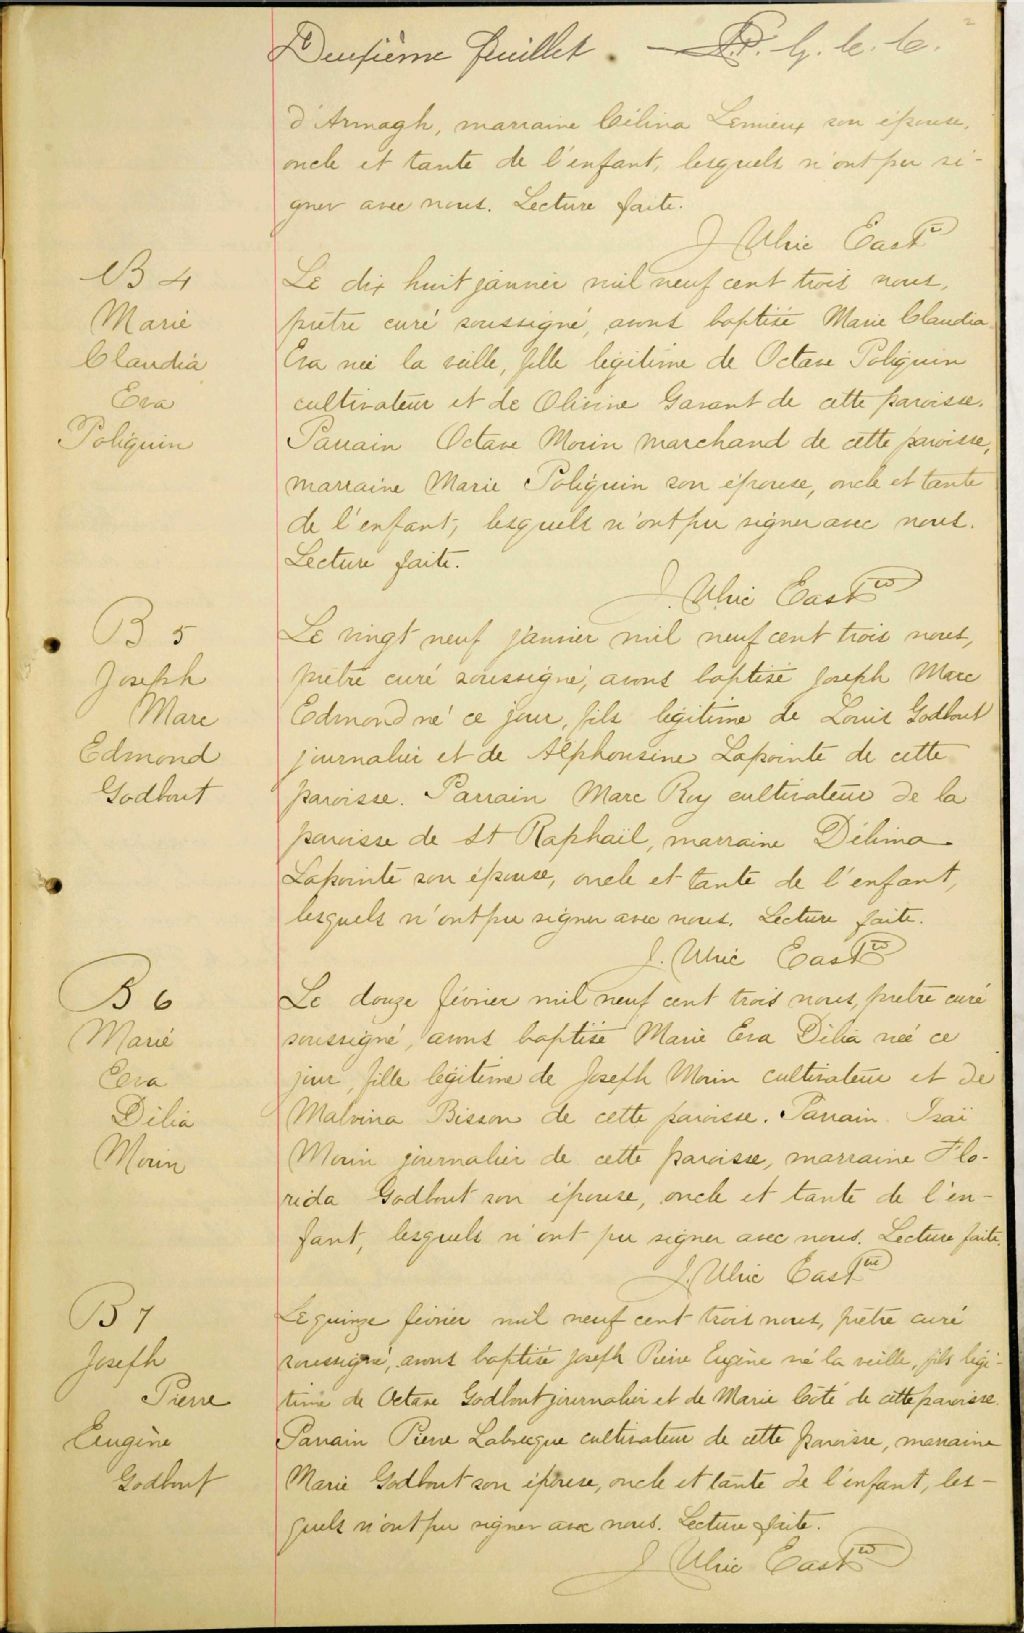 Deuxième feuillet. 
d'Armagh, marraine Célina Lemieux son épouse,
oncle et tante de l'enfant, lesquels n'ont pu si-
gner avec nous. Lecture faite.
J Ulric East
B 4
Marie
Claudia
Eva
Poliquin
Le dix huit janvier mil neuf cent trois nous,
prêtre curé soussigné, avons baptisé Marie Claudia
Eva née la veille, fille légitime de Octave Poliquin
cultivateur et de Olivine Garant de cette paroisse.
Parrain Octave Morin marchand de cette paroisse,
marraine Marie Poliquin son épouse, oncle et tante
de l'enfant, lesquels n'ont pu signer avec nous.
Lecture faite.
J. Ulric East
B 5
Joseph
Marc
Edmond
Godbout
Le vingt neuf janvier mil neuf cent trois nous,
prêtre curé soussigné, avons baptisé Joseph Marc
Edmond né ce jour, fils légitime de Louis Godbout
journalier et de Alphonsine Lapointe de cette
paroisse. Parrain Marc Roy cultivateur de la
paroisse de St Raphaël, marraine Délima
Lapointe son épouse, oncle et tante de l'enfant,
lesquels n'ont pu signer avec nous. Lecture faite.
J. Ulric East
B 6
Marie
Eva
Délia
Morin
Le douze février mil neuf cent trois nous, prêtre curé
soussigné, avons baptisé Marie Eva Délia née ce
jour, fille légitime de Joseph Morin cultivateur et de
Malvina Bisson de cette paroisse. Parrain Isaï
Morin journalier de cette paroisse, marraine Flo-
rida Godbout son épouse, oncle et tante de l'en-
fant, lesquels n'ont pu signer avec nous. Lecture faite.
J. Ulric East
B 7
Joseph
Pierre
Eugène
Godbout
Le quinze février mil neuf cent trois nous, prêtre curé
soussigné, avons baptisé Joseph Pierre Eugène né la veille, fils légi-
time de Octave Godbout journalier et de Marie Côté de cette paroisse.
Parrain Pierre Labrecque cultivateur de cette paroisse, marraine
Marie Godbout son épouse, oncle et tante de l'enfant, les-
quels n'ont pu signer avec nous. Lecture faite.
J Ulric East